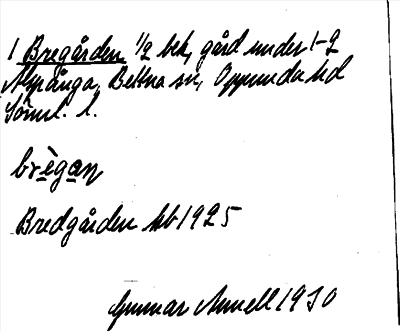 1 Bregården 1/2 bek, gård under 1-2
Myrånga, Bettna sn, Oppunda hd
Söml. l.
brègan
Bredgården kb 1925
Gunnar Annell 1930